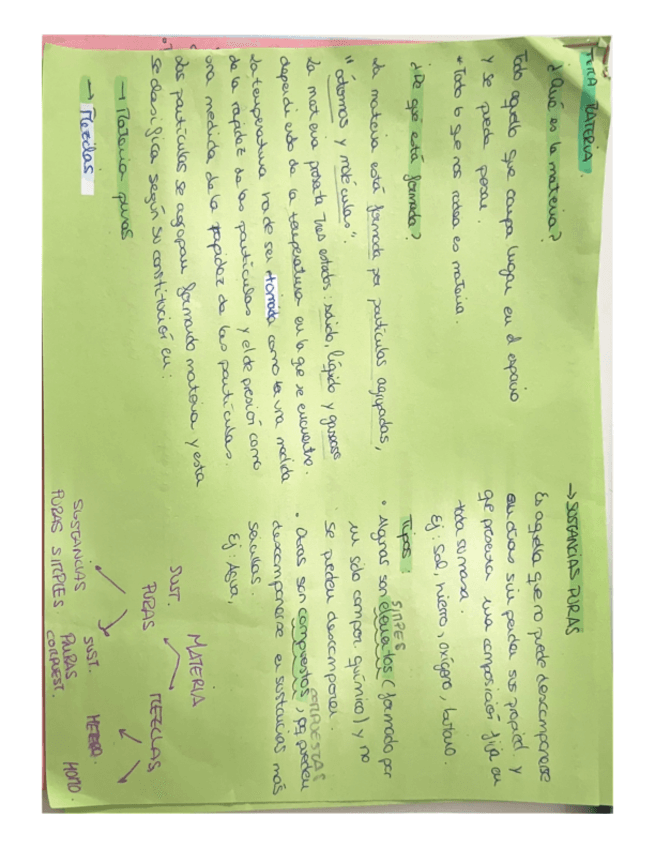 TEMA MATERIA.
¿Qué es la materia?
Todo aquello que ocupa lugar en el espacio
y se puede pesar.
* Todo lo que nos rodea es materia.
¿De qué está formada?
La materia está formada por partículas agrupadas,
"átomos y moléculas".
La materia presenta tres estados: sólido, líquido y gaseoso
dependiendo de la temperatura en la que se encuentre.
La temperatura ha de ser tomada como la una medida
de la rapidez de las partículas y el de presión como
una medida de la rapidez de las partículas.
Las partículas se agrupan formando materia y esta
se clasifica según su constitución en:
→ Materia puras
→ Mezclas
→ SUSTANCIAS PURAS
Es aquella que no puede descomponerse
en otras sin perder sus propied. y
que presenta una composición fija en
toda su masa.
Ej: Sal, hierro, oxígeno,
Tipos:
SIMPLES
• Algunas son elementos (formado por
un sólo compon. químico) y no
se pueden descomponer.
COMPUESTAS
• Otras son compuestos, pq pueden
descomponerse en sustancias más
sencillas.
Ej: Agua,
MATERIA
SUST.
PURAS
MEZCLAS
SUSTANCIAS
PURAS SIMPLES
SUST.
PURAS
COMPUEST.
HETERO.
HOMO.